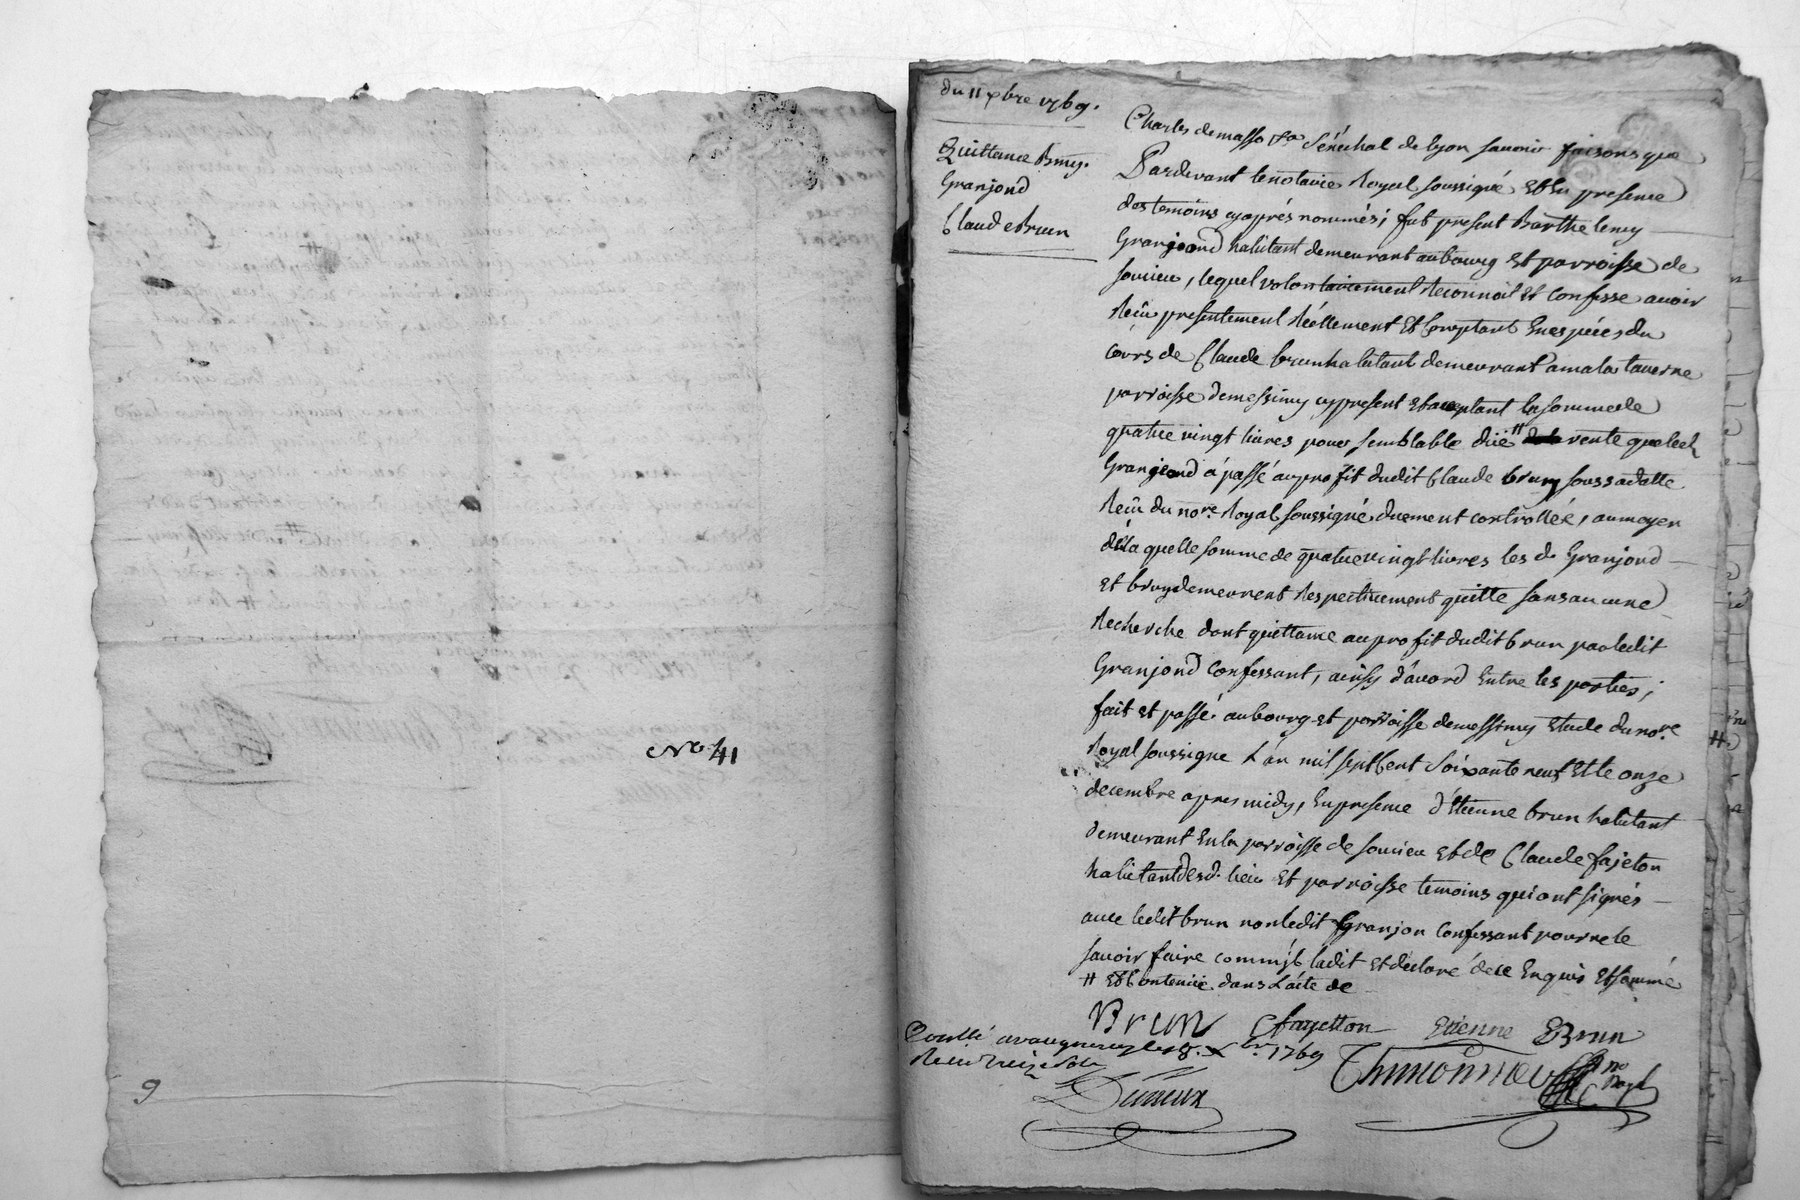 No 41
9
du 11 xbre 1769.
Quittance Bmy.
Granjond
Claude Brun
Charles demasso Sénéchal de lyon savoir faisons que
Pardevant le notaire Royal soussigné et en presence
des temoins cyaprés nommés; fut present Barthelemy
Granjeond habitant demeurant au bourg et parroisse de
soucieu, lequel volontairement Reconnoit et confesse avoir
Reçu presentement Réellement et Comptant en espéces du
cours de Claude brun habitant demeurant a mala taverne
parroisse de messimy cy present et acceptant la somme de
quatre vingt livres pour semblable düe # vente que led.
Granjeond a passé au profit dudit Claude brun sous sa datte
Reçu du nore. Royal soussigné duement controllée, au moyen
de la quelle somme de quatre vingt livres les d. Granjond
et bruy demeurent Respectivement quitte sans aucune
Recherche dont quittance au profit dudit brun par ledit
Granjond Confessant, ainsy d'acord entre les parties;
fait et passé au bourg et parroisse de messimy etude du nore.
Royal soussigne L'an mil sept Cent soixante neuf et le onze
decembre apres midy, en presence d'Etienne brun habitant
demeurant en la parroisse de soucieu et de Claude fajeton
habitant desd. lieu et parroisse temoins qui ont signés
avec ledit brun non ledit Granjon Confessant pour ne le
savoir faire comm'il la dit et declaré de ce enquis et sommé
# et Contenüe dans L'acte de
Brun Cfayetton Etienne Brun
Conllé a vaugneray le 18. xbr. 1769
Reçu treize sols
Thimonnier no Royal